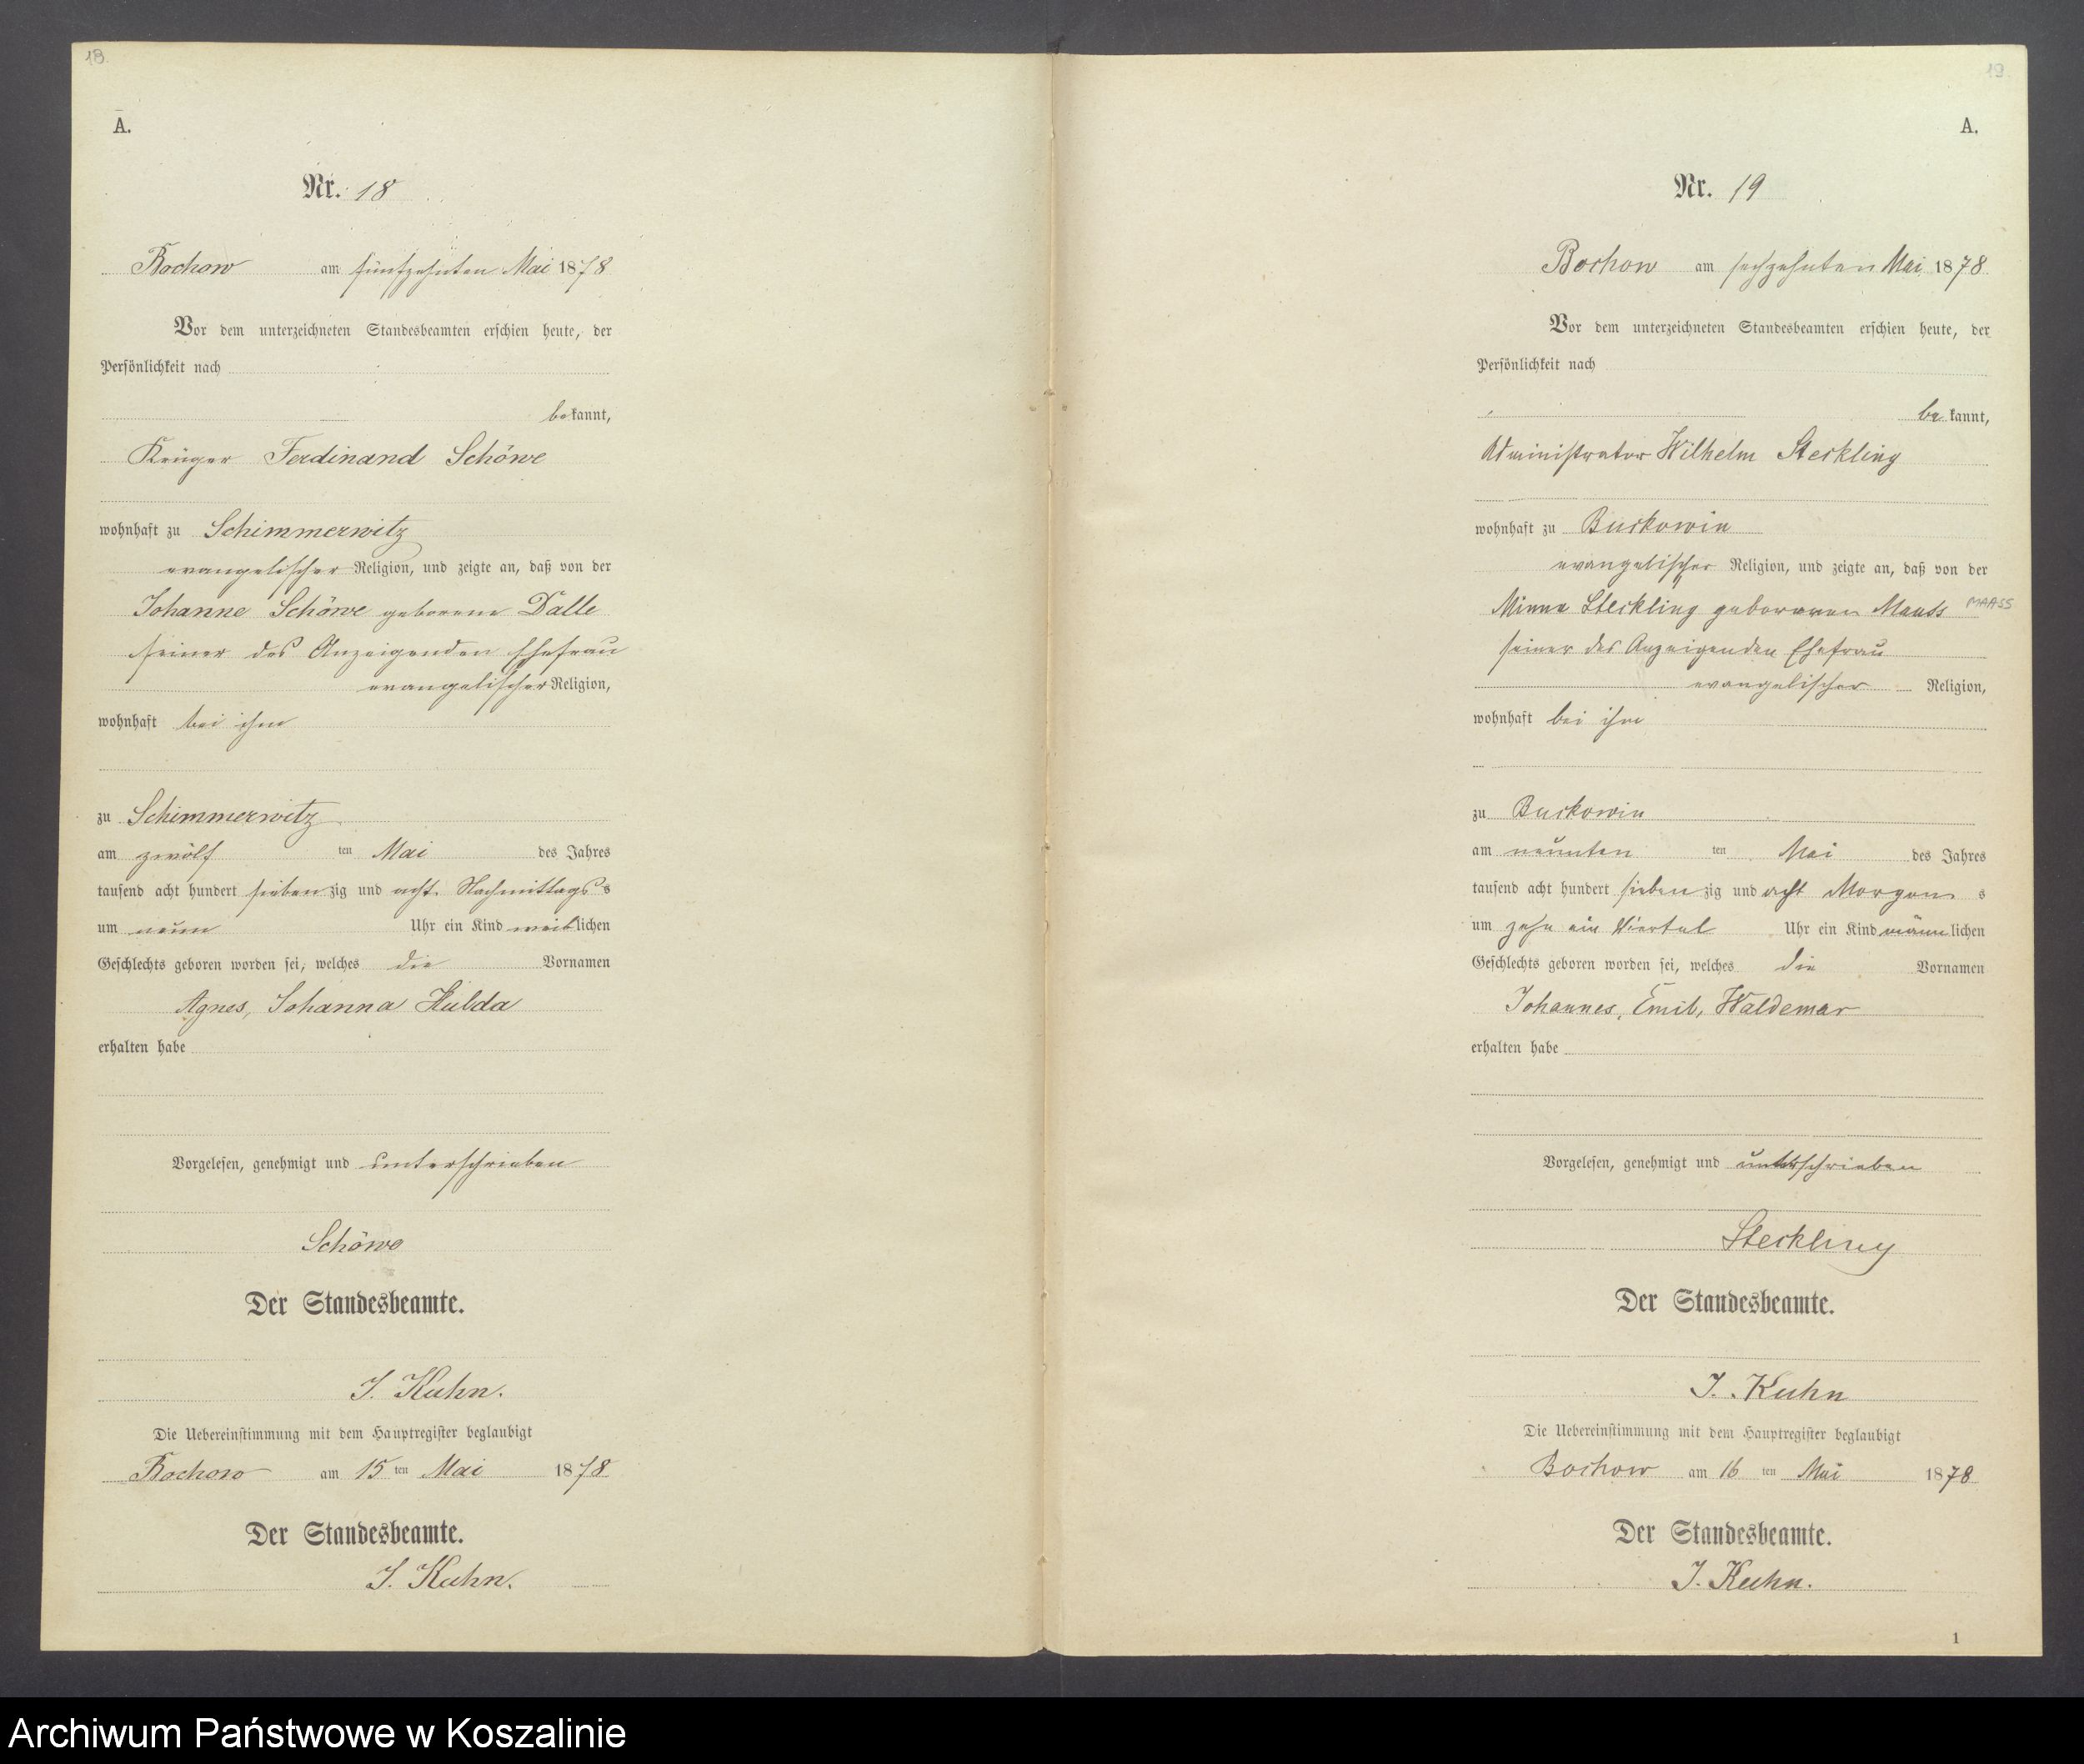 18.
A.
Nr. 18
Bochow am fünfzehnten Mai 1878
Vor dem unterzeichneten Standesbeamten erschien heute, der
Persönlichkeit nach
bekannt,
Krüger Ferdinand Schöwe
wohnhaft zu Schimmerwitz
evangelischer Religion, und zeigte an, daß von der
Johanne Schöwe geborene Dalle
seiner des Anzeigenden Ehefrau
evangelischer Religion,
wohnhaft bei ihm
zu Schimmerwitz
am zwölf ten Mai des Jahres
tausend acht hundert siebenzig und acht Nachmittags s
um neun Uhr ein Kind weiblichen
Geschlechts geboren worden sei, welches die Vornamen
Agnes, Johanna Hulda
erhalten habe
Vorgelesen, genehmigt und unterschrieben
Schöwe
Der Standesbeamte.
J. Kuhn.
Die Uebereinstimmung mit dem Hauptregister beglaubigt
Bochow am 15 ten Mai 1878
Der Standesbeamte.
J. Kuhn.
19
A.
Nr. 19
Bochow am sechzehnten Mai 1878
Vor dem unterzeichneten Standesbeamten erschien heute, der
Persönlichkeit nach
bekannt,
Administrator Wilhelm Steckling
wohnhaft zu Buckowin
evangelischer Religion, und zeigte an, daß von der
Minna Steckling geborenen Maass MAASS
seiner des Anzeigenden Ehefrau
evangelischer Religion,
wohnhaft bei ihm
zu Buckowin
am neunten ten Mai des Jahres
tausend acht hundert siebenzig und acht Morgens
um zehn ein Viertel Uhr ein Kind männlichen
Geschlechts geboren worden sei, welches die Vornamen
Johannes, Emil, Waldemar
erhalten habe
Vorgelesen, genehmigt und unterschrieben
Steckling
Der Standesbeamte.
J. Kuhn
Die Uebereinstimmung mit dem Hauptregister beglaubigt
Bochow am 16 ten Mai 1878
Der Standesbeamte.
J. Kuhn.
1
Archiwum Państwowe w Koszalinie